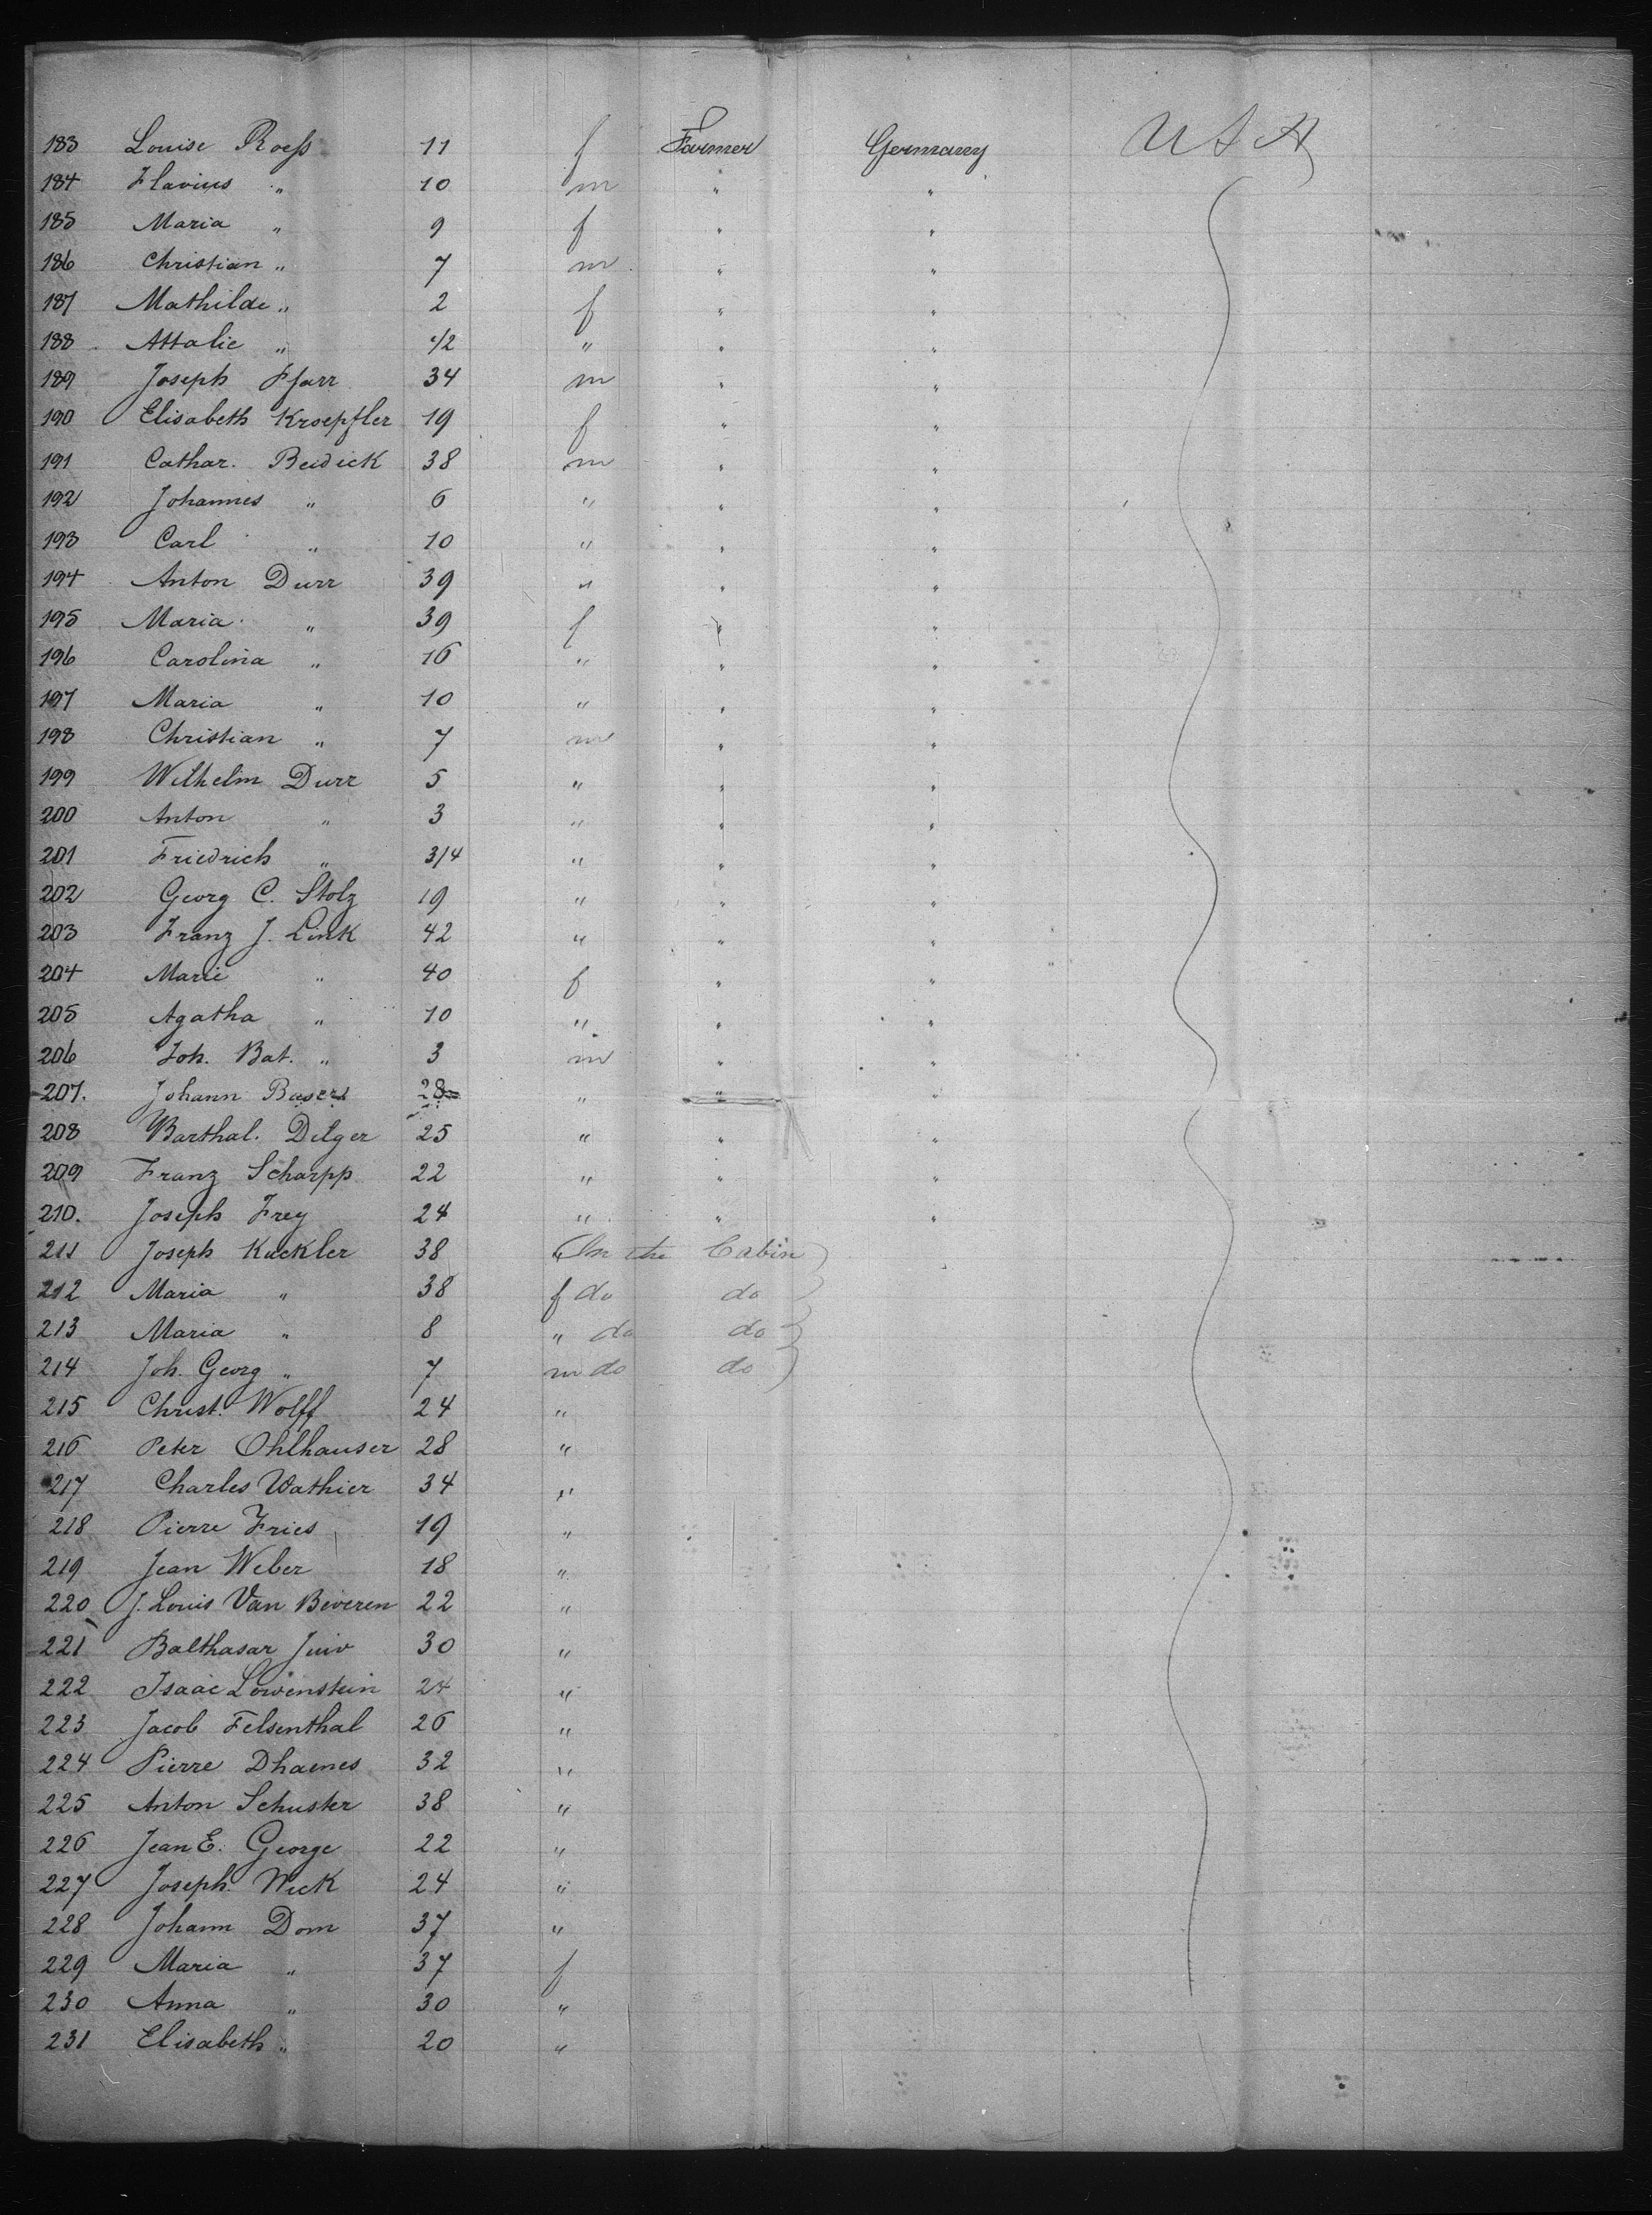 183 Louise Roeß 11 f Farmer Germany U S A
184 Flavius " 10 m " "
185 Maria " 9 f " "
186 Christian " 7 m " "
187 Mathilde " 2 f " "
188 Attalie " 1/2 " " "
189 Joseph Pfarr 34 m " "
190 Elisabeth Kroepfler 19 f " "
191 Cathar. Beidick 38 m " "
192 Johannes " 6 " " "
193 Carl " 10 " " "
194 Anton Durr 39 " " "
195 Maria " 39 f " "
196 Carolina " 16 " " "
197 Maria " 10 " " "
198 Christian " 7 m " "
199 Wilhelm Durr 5 " " "
200 Anton " 3 " " "
201 Friedrich " 3/4 " " "
202 Georg C. Stolz 19 " " "
203 Franz J. Link 42 " " "
204 Marie " 40 f " "
205 Agatha " 10 " " "
206 Joh. Bat. " 3 m " "
207. Johann 28 " " "
208 Barthal. Dilger 25 " " "
209 Franz Scharpp 22 " " "
210. Joseph Frey 24 " " "
211 Joseph Kuckler 38 " In the Cabin
212 Maria " 38 f do do
213 Maria " 8 " do do
214 Joh. Georg " 7 m do do
215 Christ. Wolff 24 "
216 Peter Ohlhauser 28 "
217 Charles Wathier 34 "
218 Pierre Fries 19 "
219 Jean Weber 18 "
220 J. Louis Van Beveren 22 "
221 Balthasar 30 "
222 Isaac Lowenstein 24 "
223 Jacob Felsenthal 26 "
224 Pierre Dhaenes 32 "
225 Anton Schuster 38 "
226 Jean E. George 22 "
227 Joseph Wick 24 "
228 Johann Dom 37 "
229 Maria " 37 f
230 Anna " 30 "
231 Elisabeth " 20 "